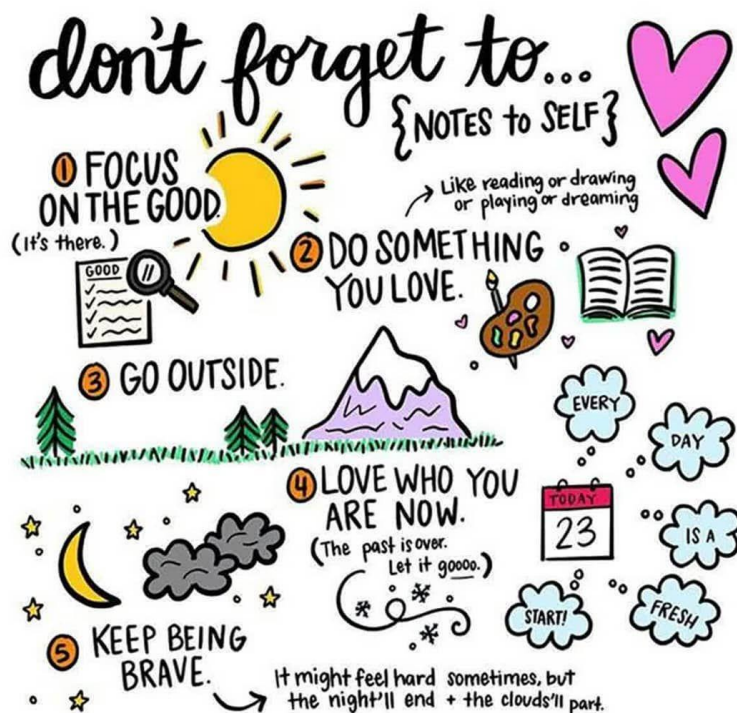 don't forget to...
{NOTES to SELF}
1 FOCUS
ON THE GOOD.
(It's there.)
GOOD
Like reading or drawing
or playing or dreaming
2 DO SOMETHING
YOU LOVE.
3 GO OUTSIDE.
4 LOVE WHO YOU
ARE NOW.
(The past is over.
Let it goooo.)
EVERY
DAY
IS A
FRESH
START!
TODAY
23
5 KEEP BEING
BRAVE.
It might feel hard sometimes, but
the night'll end + the clouds'll part.